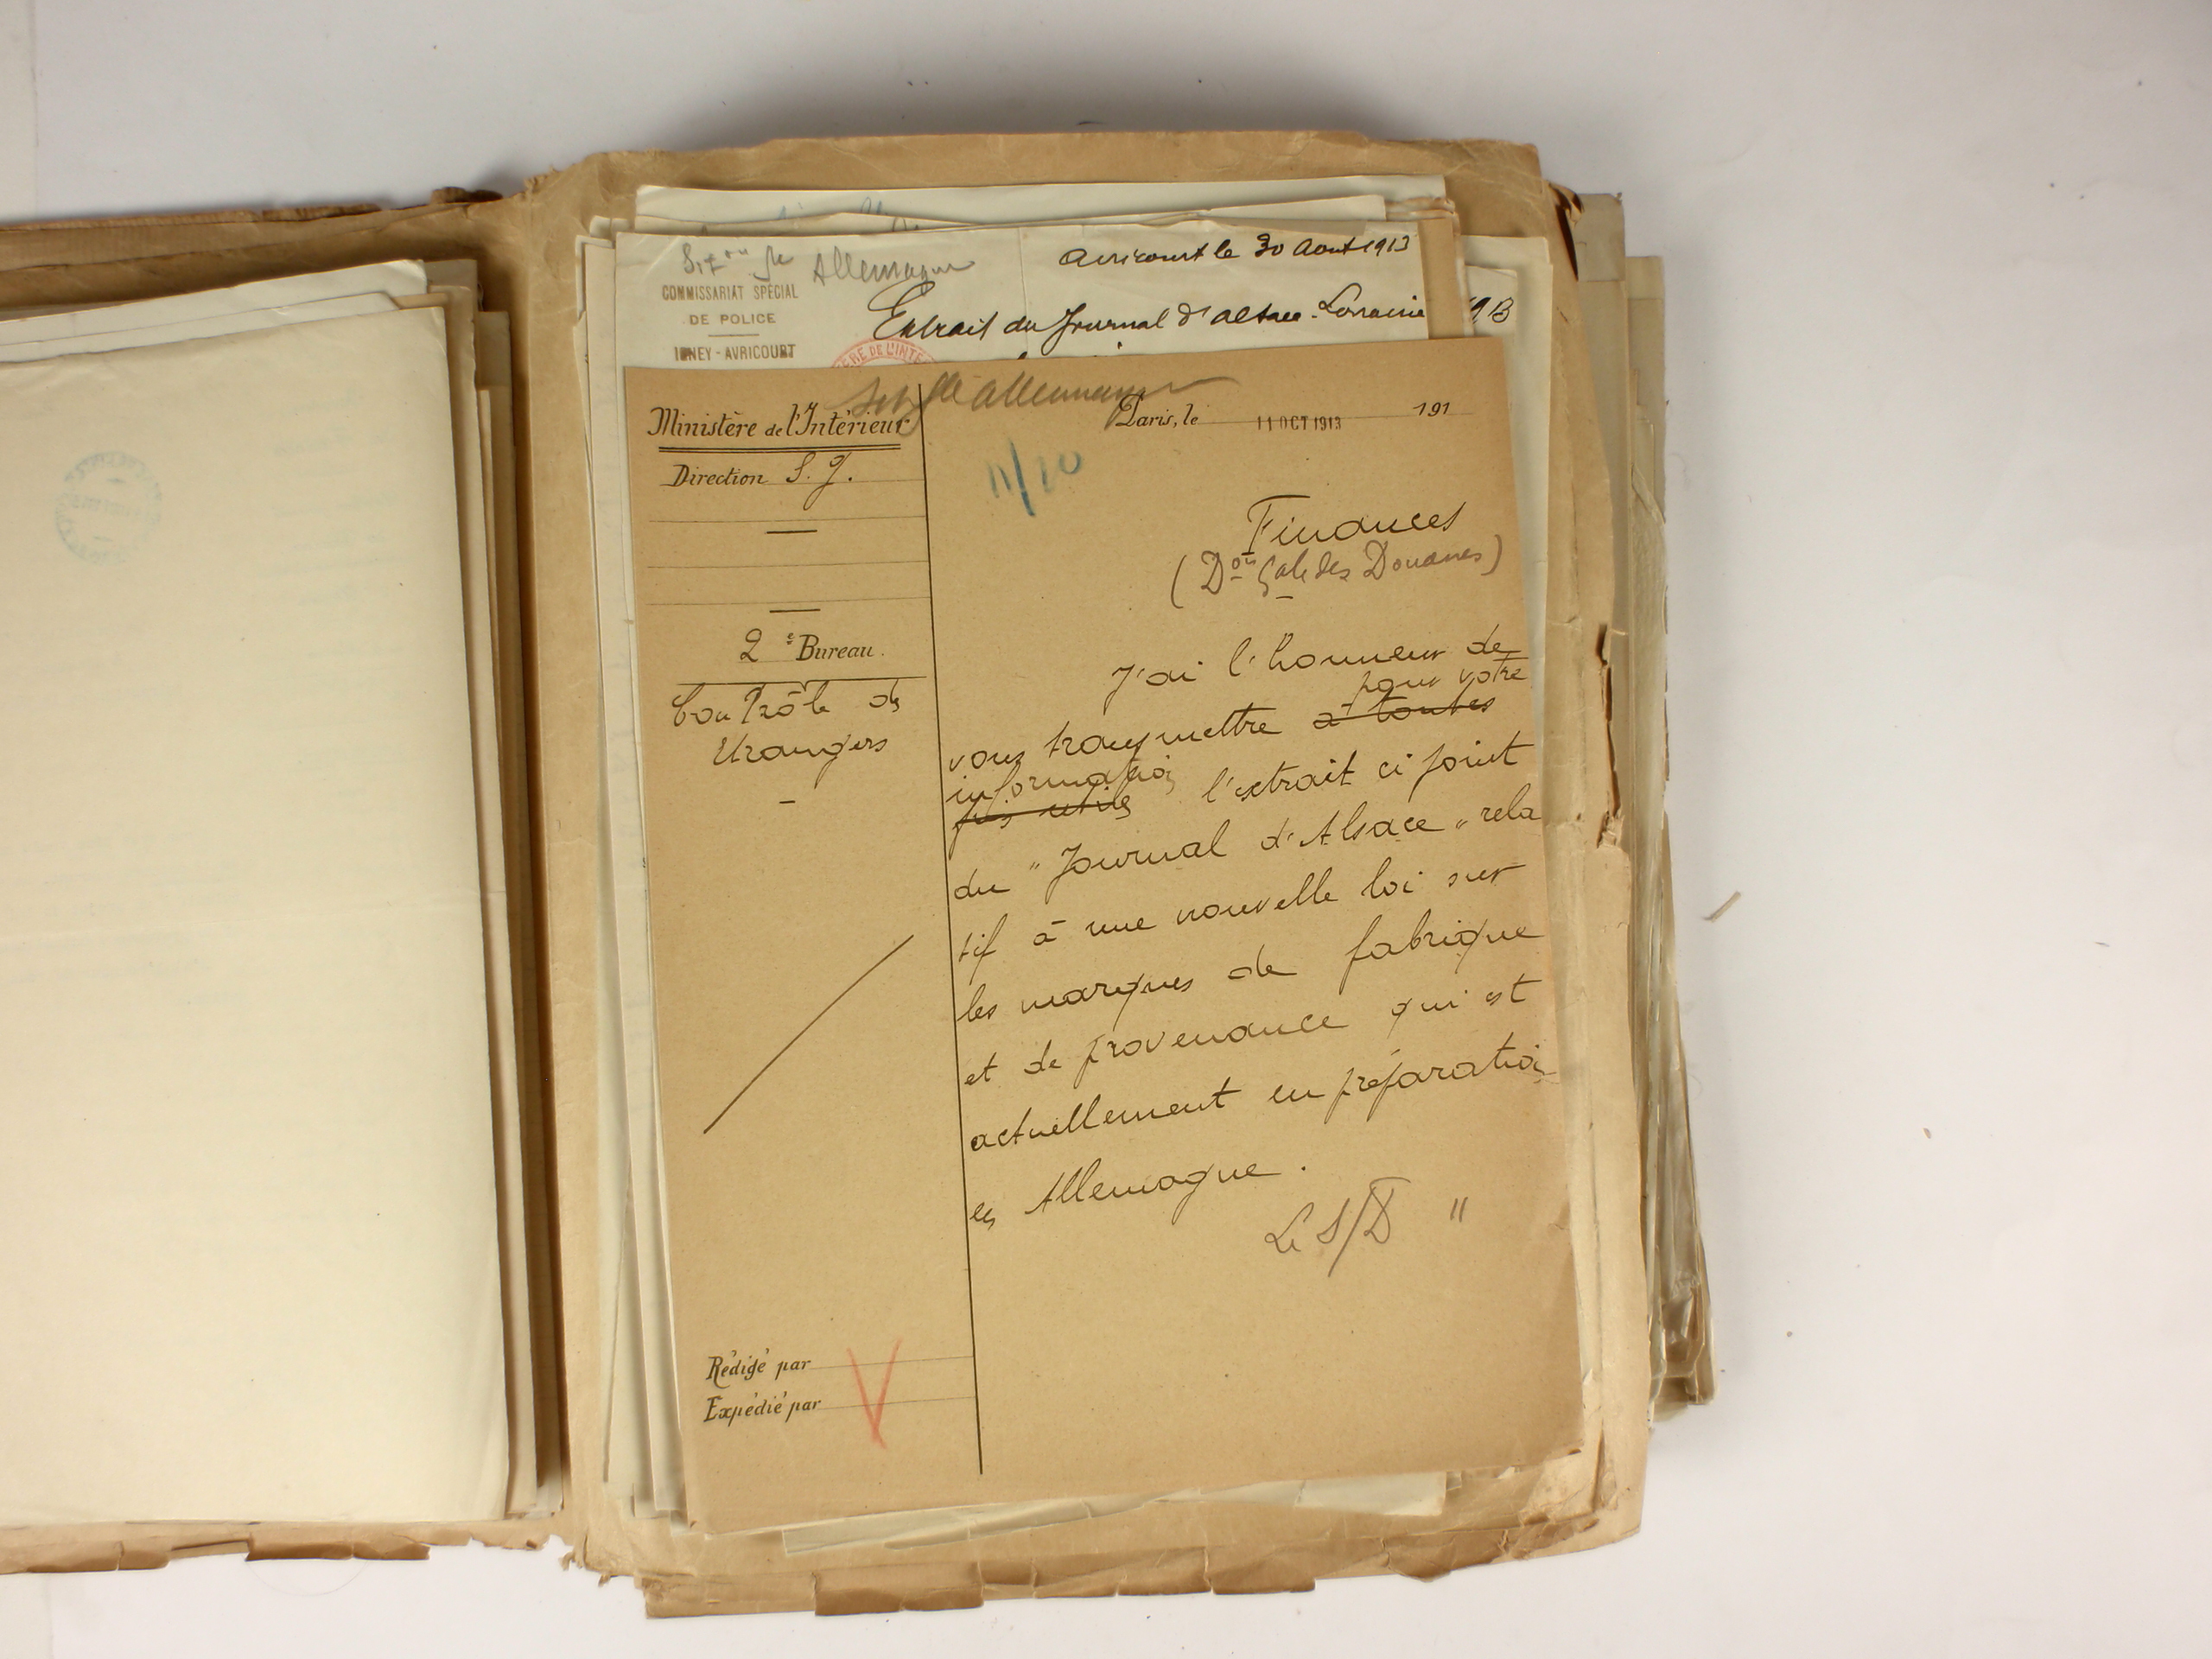 Allemagne
Avricourt le 30 Aout 1913
COMMISSARIAT SPÉCIAL
DE POLICE
IGNEY-AVRICOURT
Extrait du Journal d'Alsace-Lorraine
913
ÈRE DE L'INTÉ
Allemagne
Ministère de l'Intérieur
Paris, le 11 OCT 1913 191
Direction S. g.
11/10
Finances
(Don Gale des Douanes)
2e Bureau.
Contrôle des
Etrangers
J'ai l'honneur de
pour votre
vous transmettre à toutes
information
fins utiles l'extrait ci joint
du "Journal d'Alsace" rela
tif à une nouvelle loi sur
les marques de fabrique
et de provenance qui est
actuellement en préparation
en Allemagne.
Le S/D "
Rédigé par
Expédié par
V